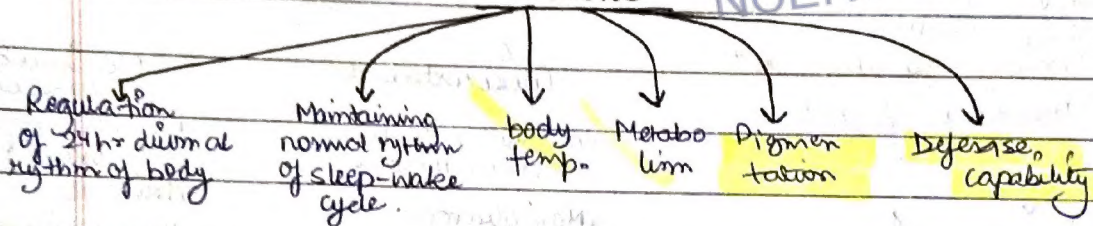 Regulation
of 24hr diurnal
rythm of body
Maintaining
normal rythm
of sleep-wake
cycle.
body
temp.
Metabo
lism
Pigmen
tation
Defense
capability